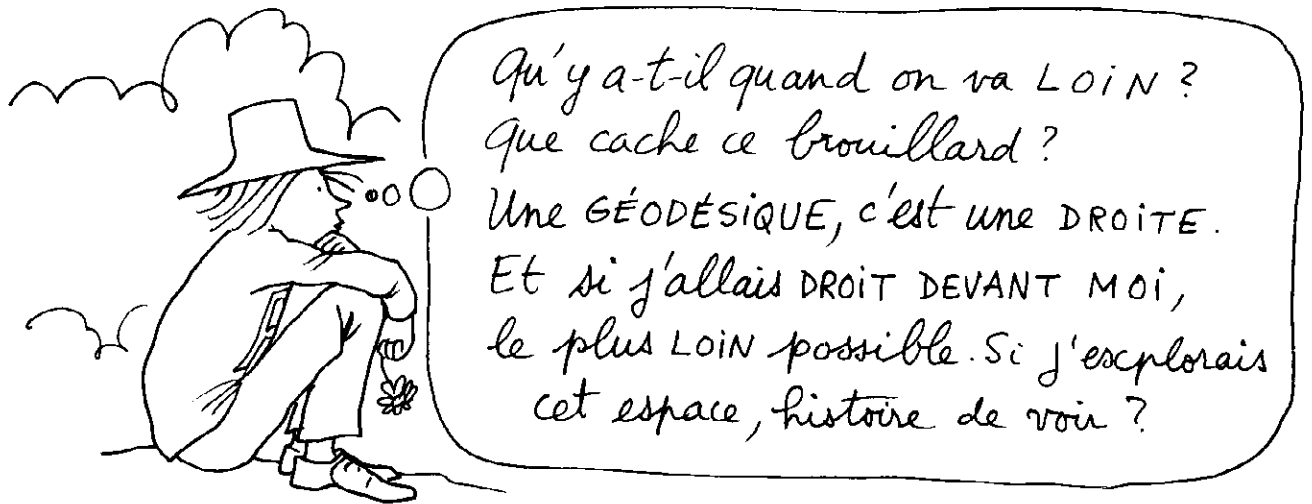 Qu'y a-t-il quand on va LOIN ?
Que cache ce brouillard ?
Une GÉODÉSIQUE, c'est une DROITE.
Et si j'allais DROIT DEVANT MOI,
le plus LOIN possible. Si j'explorais
cet espace, histoire de voir ?